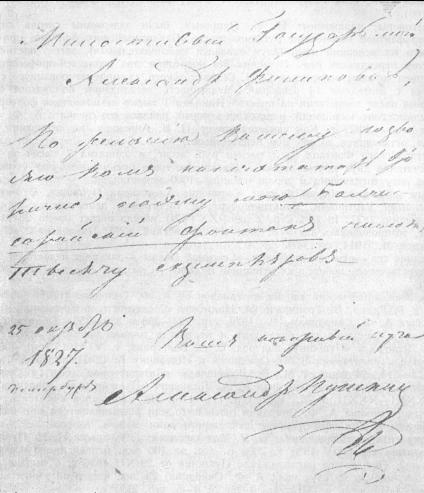 Милостивый Государь мой
Александръ Филиповичъ,
По желанію Вашему позво
ляю Вамъ напечатать вто
рично поэму мою Бахчи
сарайскій фонтанъ числомъ
тысячу экземпляровъ
25 октября
1827.
Петербургъ
Вашъ покорный слуга
Александръ Пушкинъ